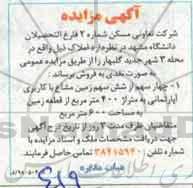 آگهی مزایده
شرکت تعاونی مسکن شماره ۲ فارغ التحصیلان
دانشگاه مشهد در نظر دارد املاک ذیل واقع در
محله ۳ شهر جدید گلبهار را از طریق مزایده عمومی
به صورت نقدی به فروش برساند :
۱- چهار سهم از شش سهم زمین مشاع با کاربری
آپارتمانی به متراژ ۴۰۰ متر مربع از قطعه زمین
به مساحت ۶۰۰ متر مربع
متقاضیان ظرف مدت ۳ روز از تاریخ درج آگهی
جهت دریافت مشخصات ملک و اسناد مزایده با
شماره تلفن : ۳۸۴۱۵۹۴۰ تماس حاصل فرمایند
هیات مدیره